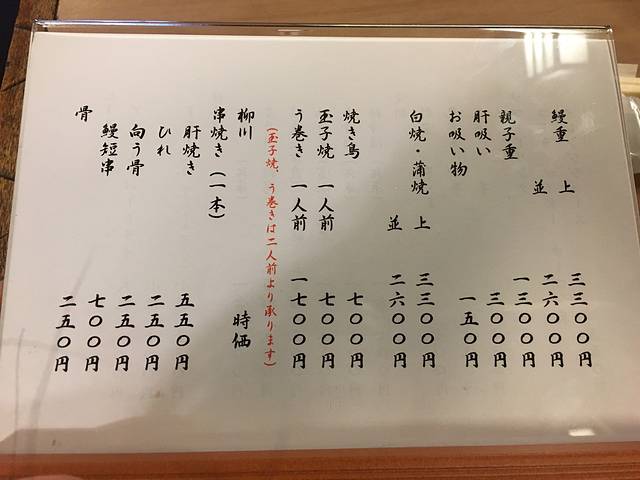 鰻重 上 三三〇〇円
並 二六〇〇円
親子重 一三〇〇円
肝吸い 三〇〇円
お吸い物 一五〇円
白焼・蒲焼 上 三三〇〇円
並 二六〇〇円
焼き鳥 七〇〇円
玉子焼 一人前 七〇〇円
う巻き 一人前 一七〇〇円
(玉子焼、う巻きは二人前より承ります)
柳川 時価
串焼き(一本)
肝焼き 五五〇円
ひれ 二五〇円
向う骨 二五〇円
鰻短串 七〇〇円
骨 二五〇円